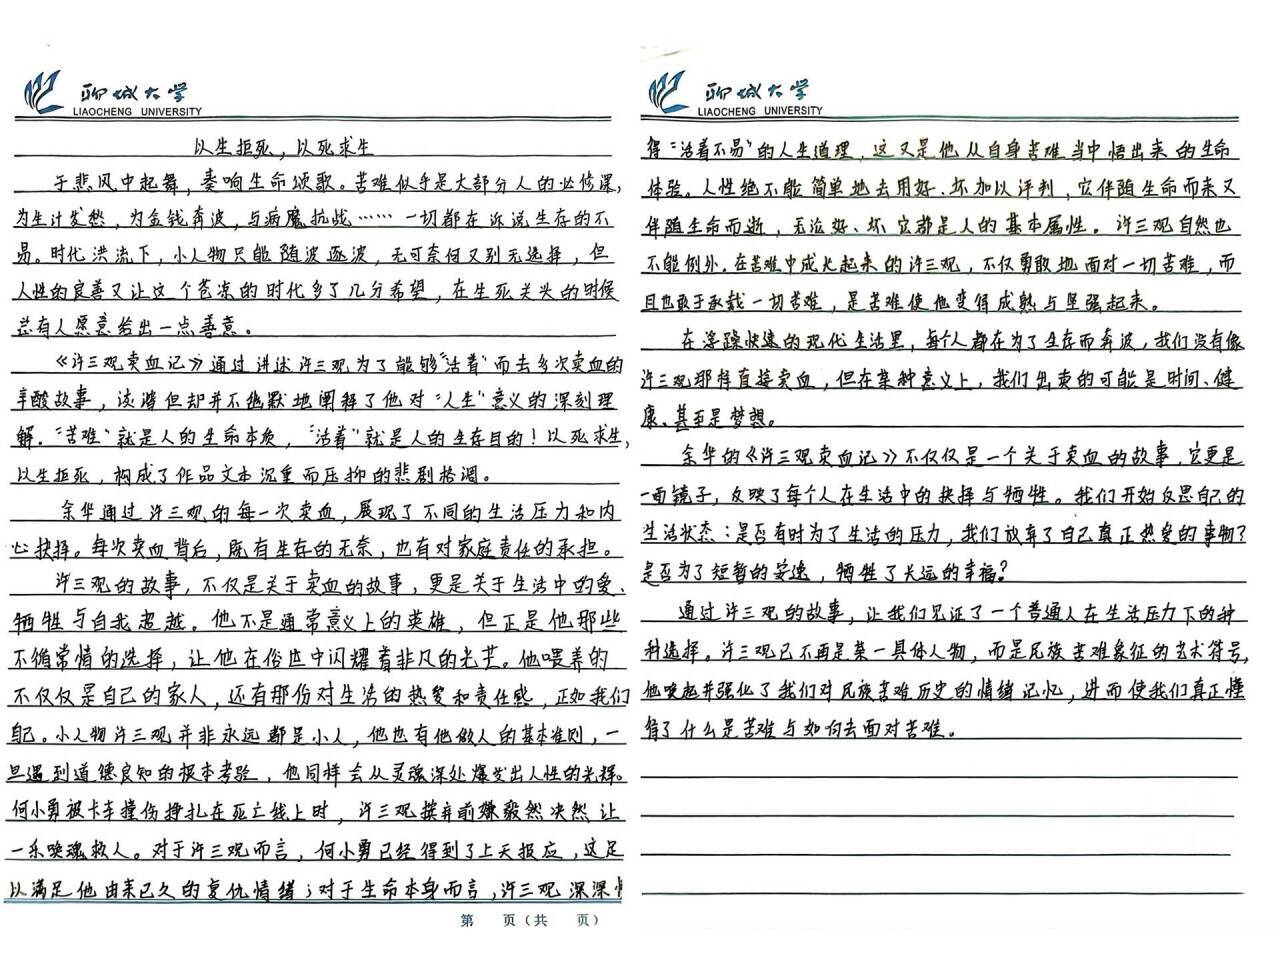 聊城大学
LIAOCHENG UNIVERSITY
以生拒死，以死求生
于悲风中起舞，奏响生命颂歌。苦难似乎是大部分人的必修课，
为生计发愁，为金钱奔波，与病魔抗战……一切都在诉说生存的不
易。时代洪流下，小人物只能随波逐波，无可奈何又别无选择，但
人性的良善又让这个苍凉的时代多了几分希望，在生死关头的时候
总有人愿意给出一点善意。
《许三观卖血记》通过讲述许三观为了能够“活着”而去多次卖血的
辛酸故事，诙谐但却并不幽默地阐释了他对“人生”意义的深刻理
解。“苦难”就是人的生命本质，“活着”就是人的生存目的！以死求生，
以生拒死，构成了作品文本沉重而压抑的悲剧格调。
余华通过许三观的每一次卖血，展现了不同的生活压力和内
心抉择。每次卖血背后，既有生存的无奈，也有对家庭责任的承担。
许三观的故事，不仅是关于卖血的故事，更是关于生活中的爱、
牺牲与自我超越。他不是通常意义上的英雄，但正是他那些
不循常情的选择，让他在俗世中闪耀着非凡的光芒。他喂养的
不仅仅是自己的家人，还有那份对生活的热爱和责任感，正如我们
自己。小人物许三观并非永远都是小人，他也有他做人的基本准则，一
旦遇到道德良知的根本考验，他同样会从灵魂深处爆发出人性的光辉。
何小勇被卡车撞伤挣扎在死亡线上时，许三观摈弃前嫌毅然决然让
一乐唤魂救人。对于许三观而言，何小勇已经得到了上天报应，这足
以满足他由来已久的复仇情绪；对于生命本身而言，许三观深深
第 页（共 页）
聊城大学
LIAOCHENG UNIVERSITY
得“活着不易”的人生道理，这又是他从自身苦难当中悟出来的生命
体验。人性绝不能简单地去用好、坏加以评判，它伴随生命而来又
伴随生命而逝，无论好、坏它都是人的基本属性。许三观自然也
不能例外。在苦难中成长起来的许三观，不仅勇敢地面对一切苦难，而
且也敢于承载一切苦难，是苦难使他变得成熟与坚强起来。
在浮躁快速的现代生活里，每个人都在为了生存而奔波，我们没有像
许三观那样直接卖血，但在某种意义上，我们出卖的可能是时间、健
康、甚至是梦想。
余华的《许三观卖血记》不仅仅是一个关于卖血的故事，它更是
一面镜子，反映了每个人在生活中的抉择与牺牲。我们开始反思自己的
生活状态：是否有时为了生活的压力，我们放弃了自己真正热爱的事物？
是否为了短暂的安逸，牺牲了长远的幸福？
通过许三观的故事，让我们见证了一个普通人在生活压力下的种
种选择。许三观已不再是某一具体人物，而是民族苦难象征的艺术符号，
他唤起并强化了我们对民族苦难历史的情绪记忆，进而使我们真正懂
得了什么是苦难与如何去面对苦难。